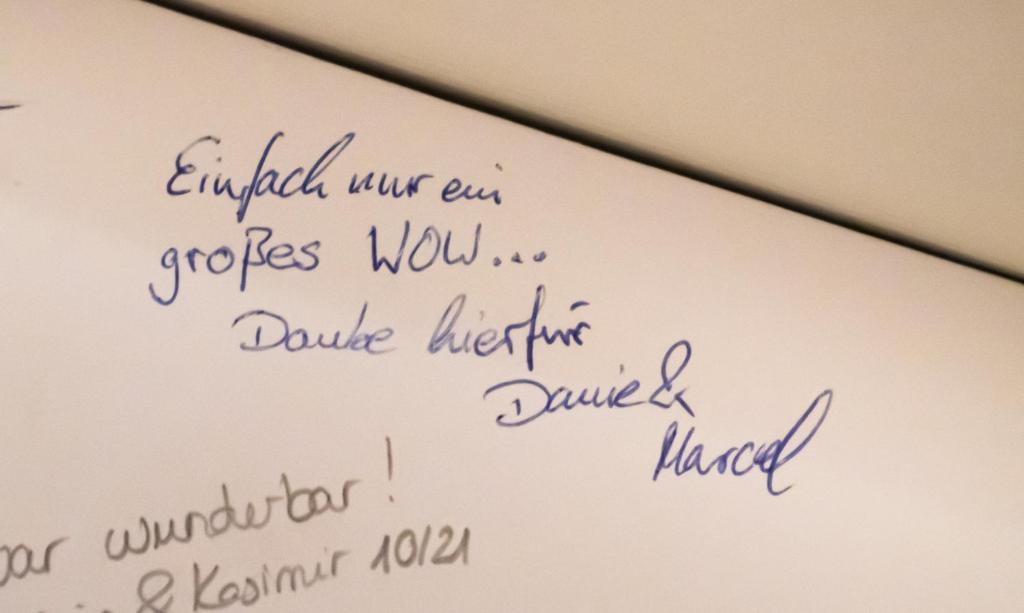 Einfach nur ein
großes WOW...
Danke hierfür
Danie &
Marcel
wunderbar!
& Kasimir 10/21